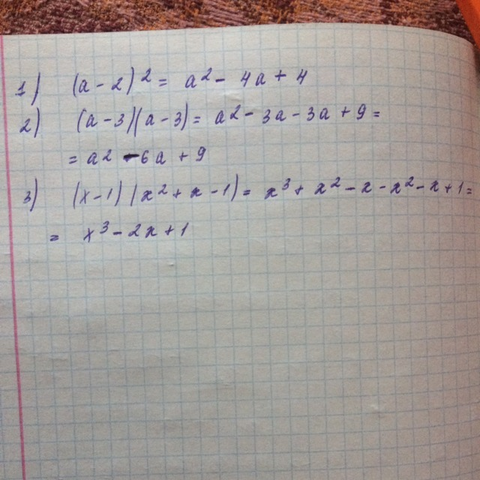 1) (a-2)² = a² - 4a + 4
2) (a-3)(a-3) = a2 - 3a - 3a + 9 =
= a2 - 6a + 9
3) (x-1)(x²+x-1) = x³ + x² - x - x² - x + 1 =
= x³ - 2x + 1